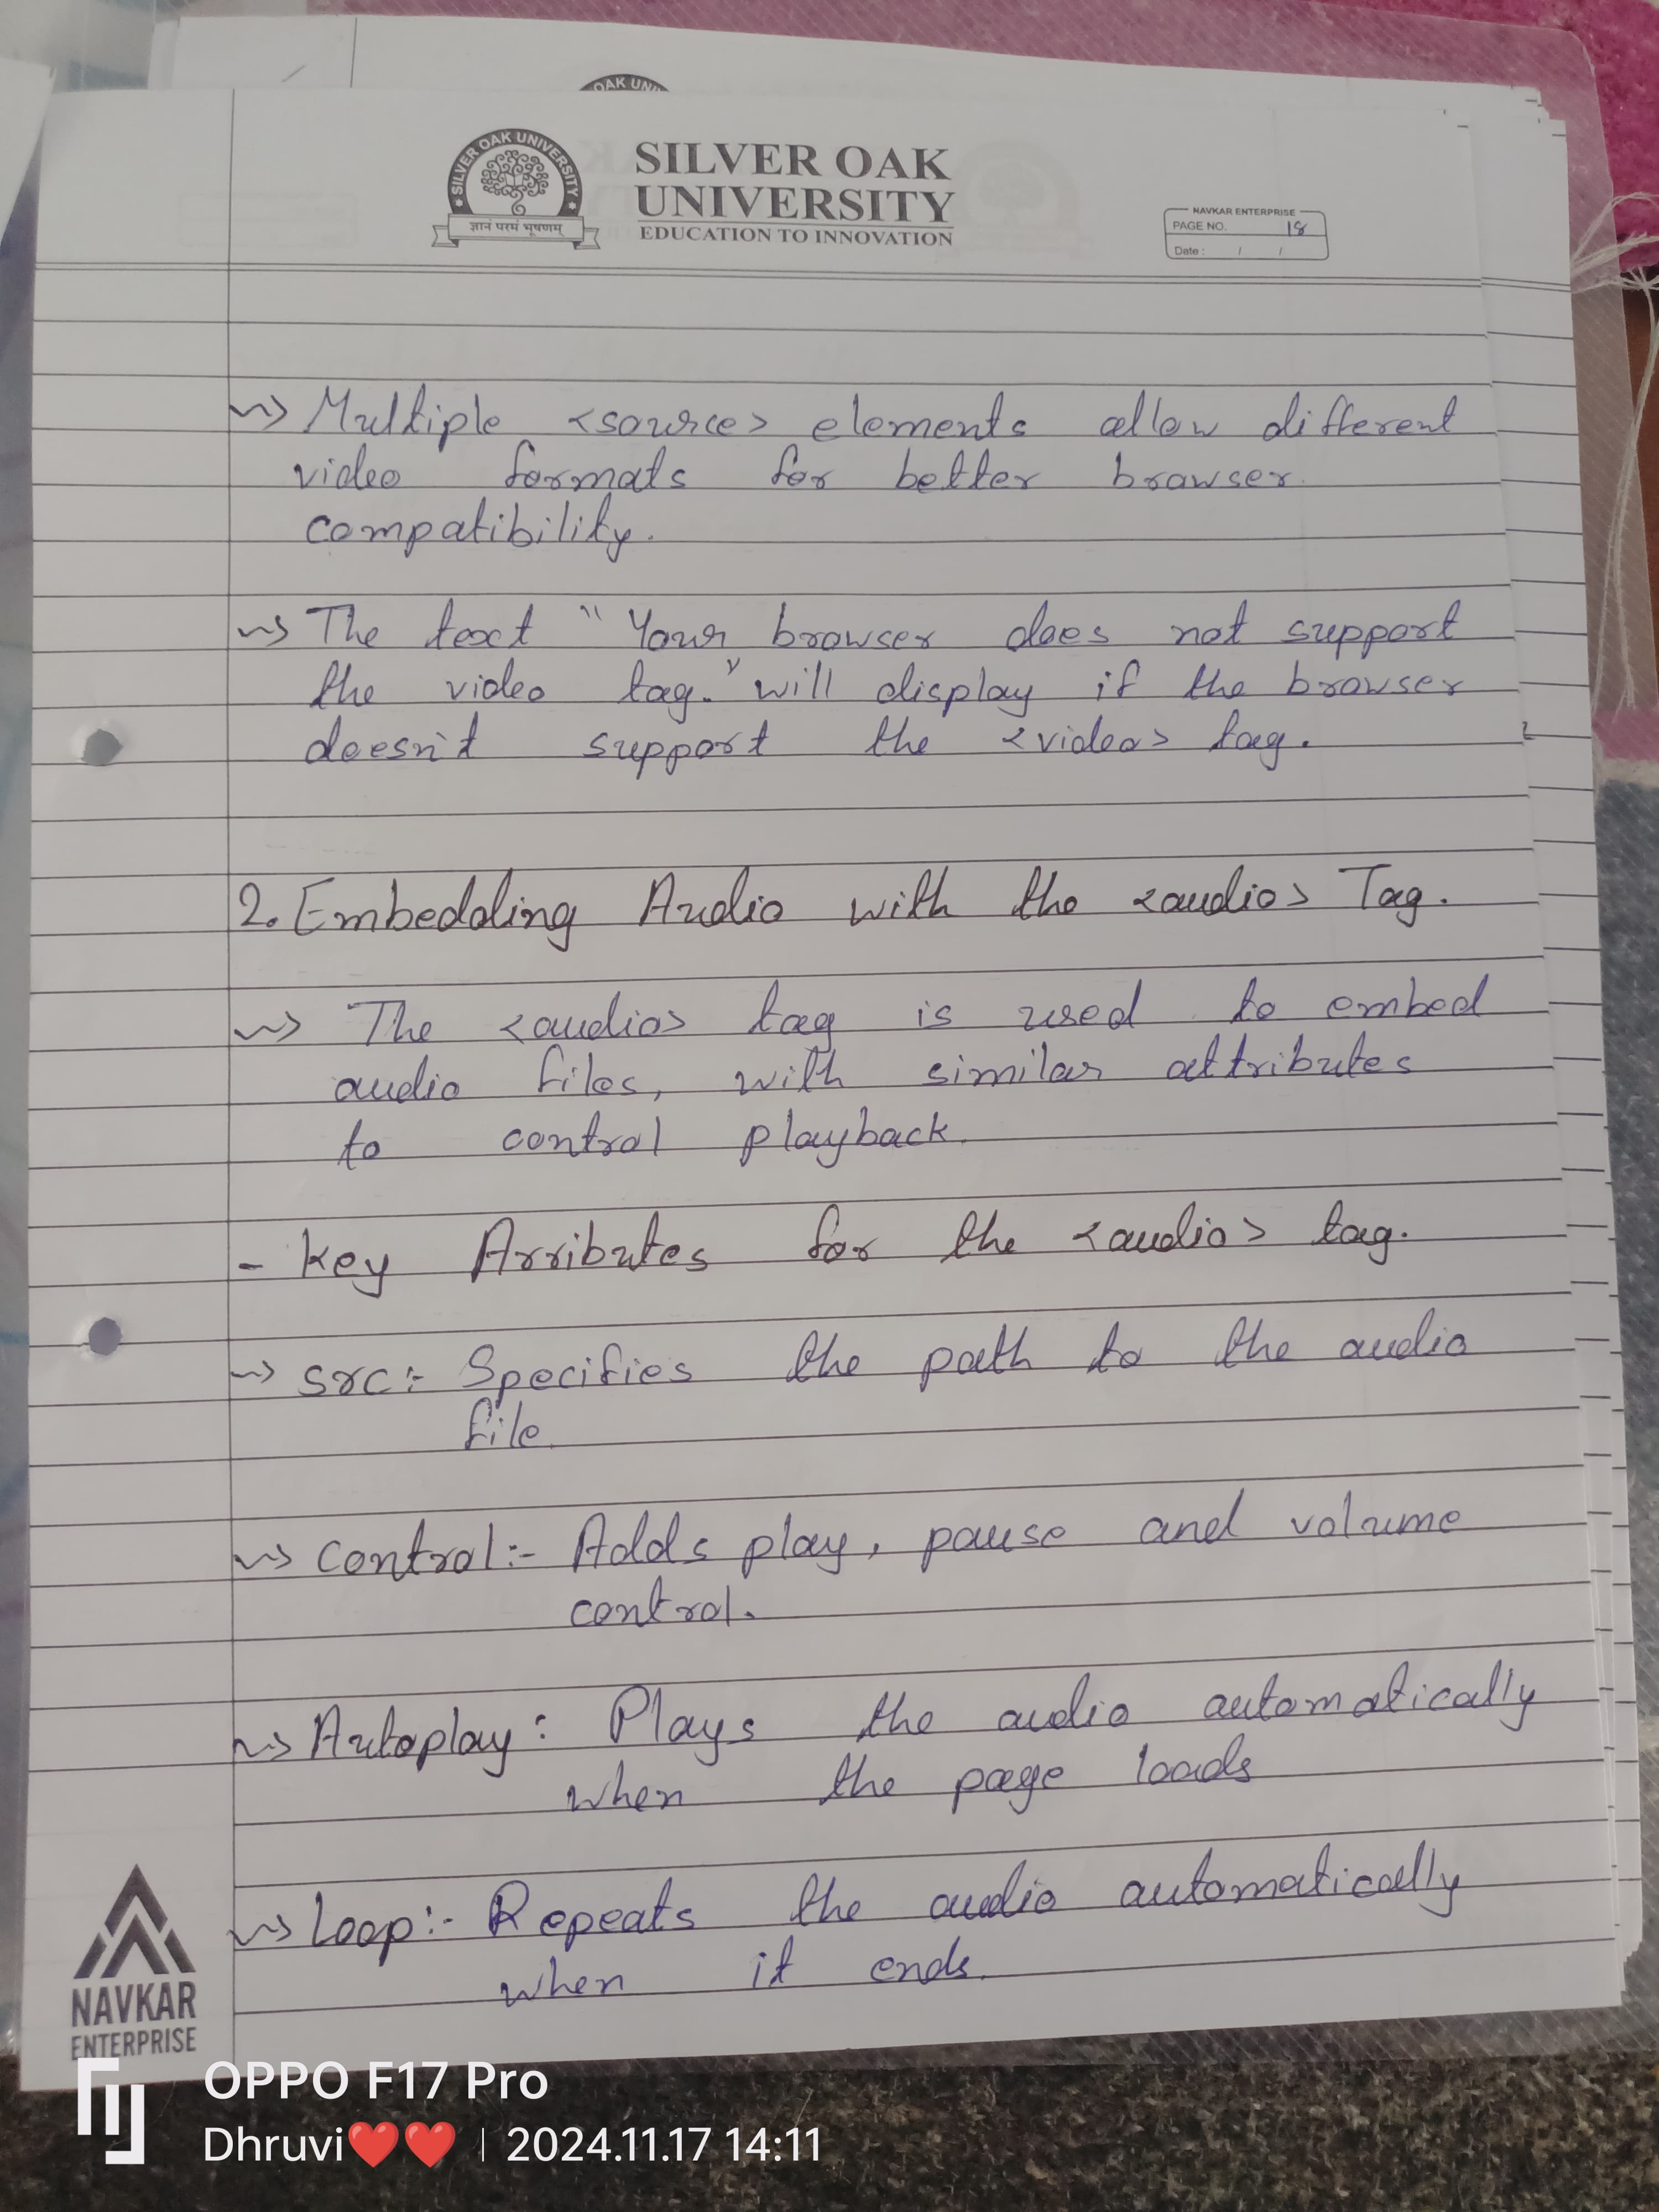 OAK UNI
SILVER OAK UNIVERSITY
ज्ञानं परमं भूषणम्
SILVER OAK
UNIVERSITY
EDUCATION TO INNOVATION
NAVKAR ENTERPRISE
PAGE NO. 18
Date : / /
~> Multiple <source> elements allow different
video formats for better browser
compatibility.
~> The text "Your browser does not support
the video tag." will display if the browser
doesn't support the <video> tag.
2. Embedding Audio with the <audio> Tag.
~> The <audio> tag is used to embed
audio files, with similar attributes
to control playback.
- Key Arributes for the <audio> tag.
~> src:- Specifies the path to the audio
file.
~> control:- Adds play, pause and volume
control.
~> Autoplay: Plays the audio automatically
when the page loads
~> Loop:- Repeats the audio automatically
when it ends.
NAVKAR
ENTERPRISE
OPPO F17 Pro
Dhruvi❤️❤️ | 2024.11.17 14:11